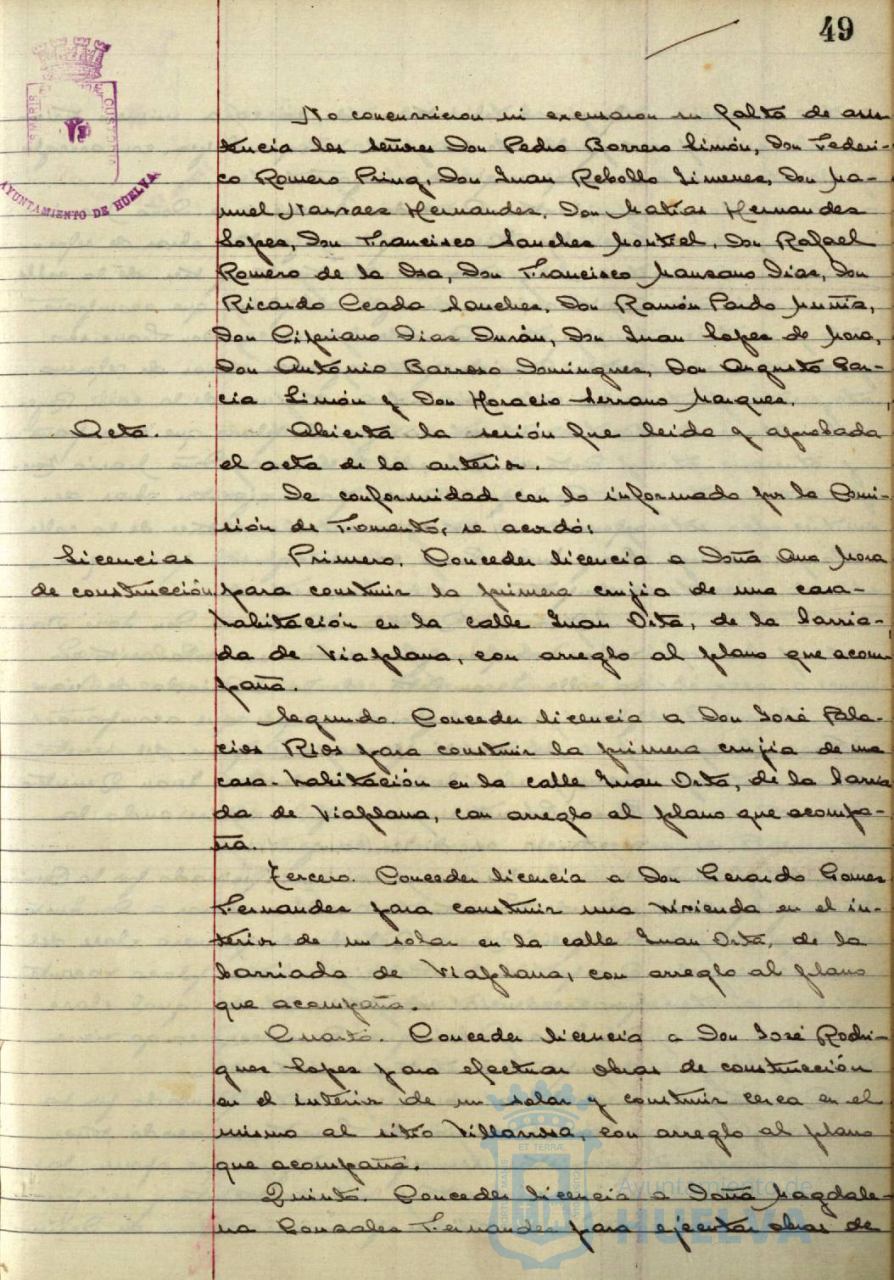 49
AYUNTAMIENTO DE HUELVA
No concurrieron ni excusaron su falta de asis-
tencia los señores Don Pedro Borrero Limón, Don Federi-
co Romero Prinz, Don Juan Rebollo Jimenez, Don Ma-
nuel Narvaez Hernandez, Don Matías Hernandez
Lopez, Don Francisco Sanchez Montiel, Don Rafael
Romero de la Osa, Don Francisco Manzano Diaz, Don
Ricardo Ceada Sanchez, Don Ramón Pardo
Don Cipriano Diaz Durán, Don Juan Lopez de Mora,
Don António Barroso Dominguez, Don Augusto Gar-
cia Limón y Don Horacio Serrano Marquez.
Acta.
Abierta la sesión fue leida y aprobada
el acta de la anterior.
De conformidad con lo informado por la Comi-
sión de Fomento, se acordó:
Licencias
de construcción
Primero. Conceder licencia a Doña Ana Mora
para construir la primera crujia de una casa-
habitación en la calle Juan Orta, de la barria-
da de Viaplana, con arreglo al plano que acom-
paña.
Segundo. Conceder licencia a Don José Pala-
cios Rios para construir la primera crujia de una
casa-habitación en la calle Juan Orta, de la barria
da de Viaplana, con arreglo al plano que acompa-
ña.
Tercero. Conceder licencia a Don Gerardo Gomez
Fernandez para construir una vivienda en el in-
terior de un solar en la calle Juan Orta, de la
barriada de Viaplana, con arreglo al plano
que acompaña.
Cuarto. Conceder licencia a Don José Rodri-
guez Lopez para efectuar obras de construcción
en el interior de un solar y construir cerca en el
mismo al sitio Villarrosa, con arreglo al plano
que acompaña.
Quinto. Conceder licencia a Doña Magdale-
na Gonzalez Fernandez para ejecutar obras de
Ayuntamiento de
HUELVA